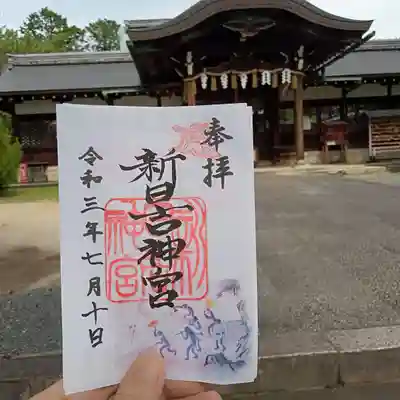 奉拝
新日吉神宮
令和三年七月十日